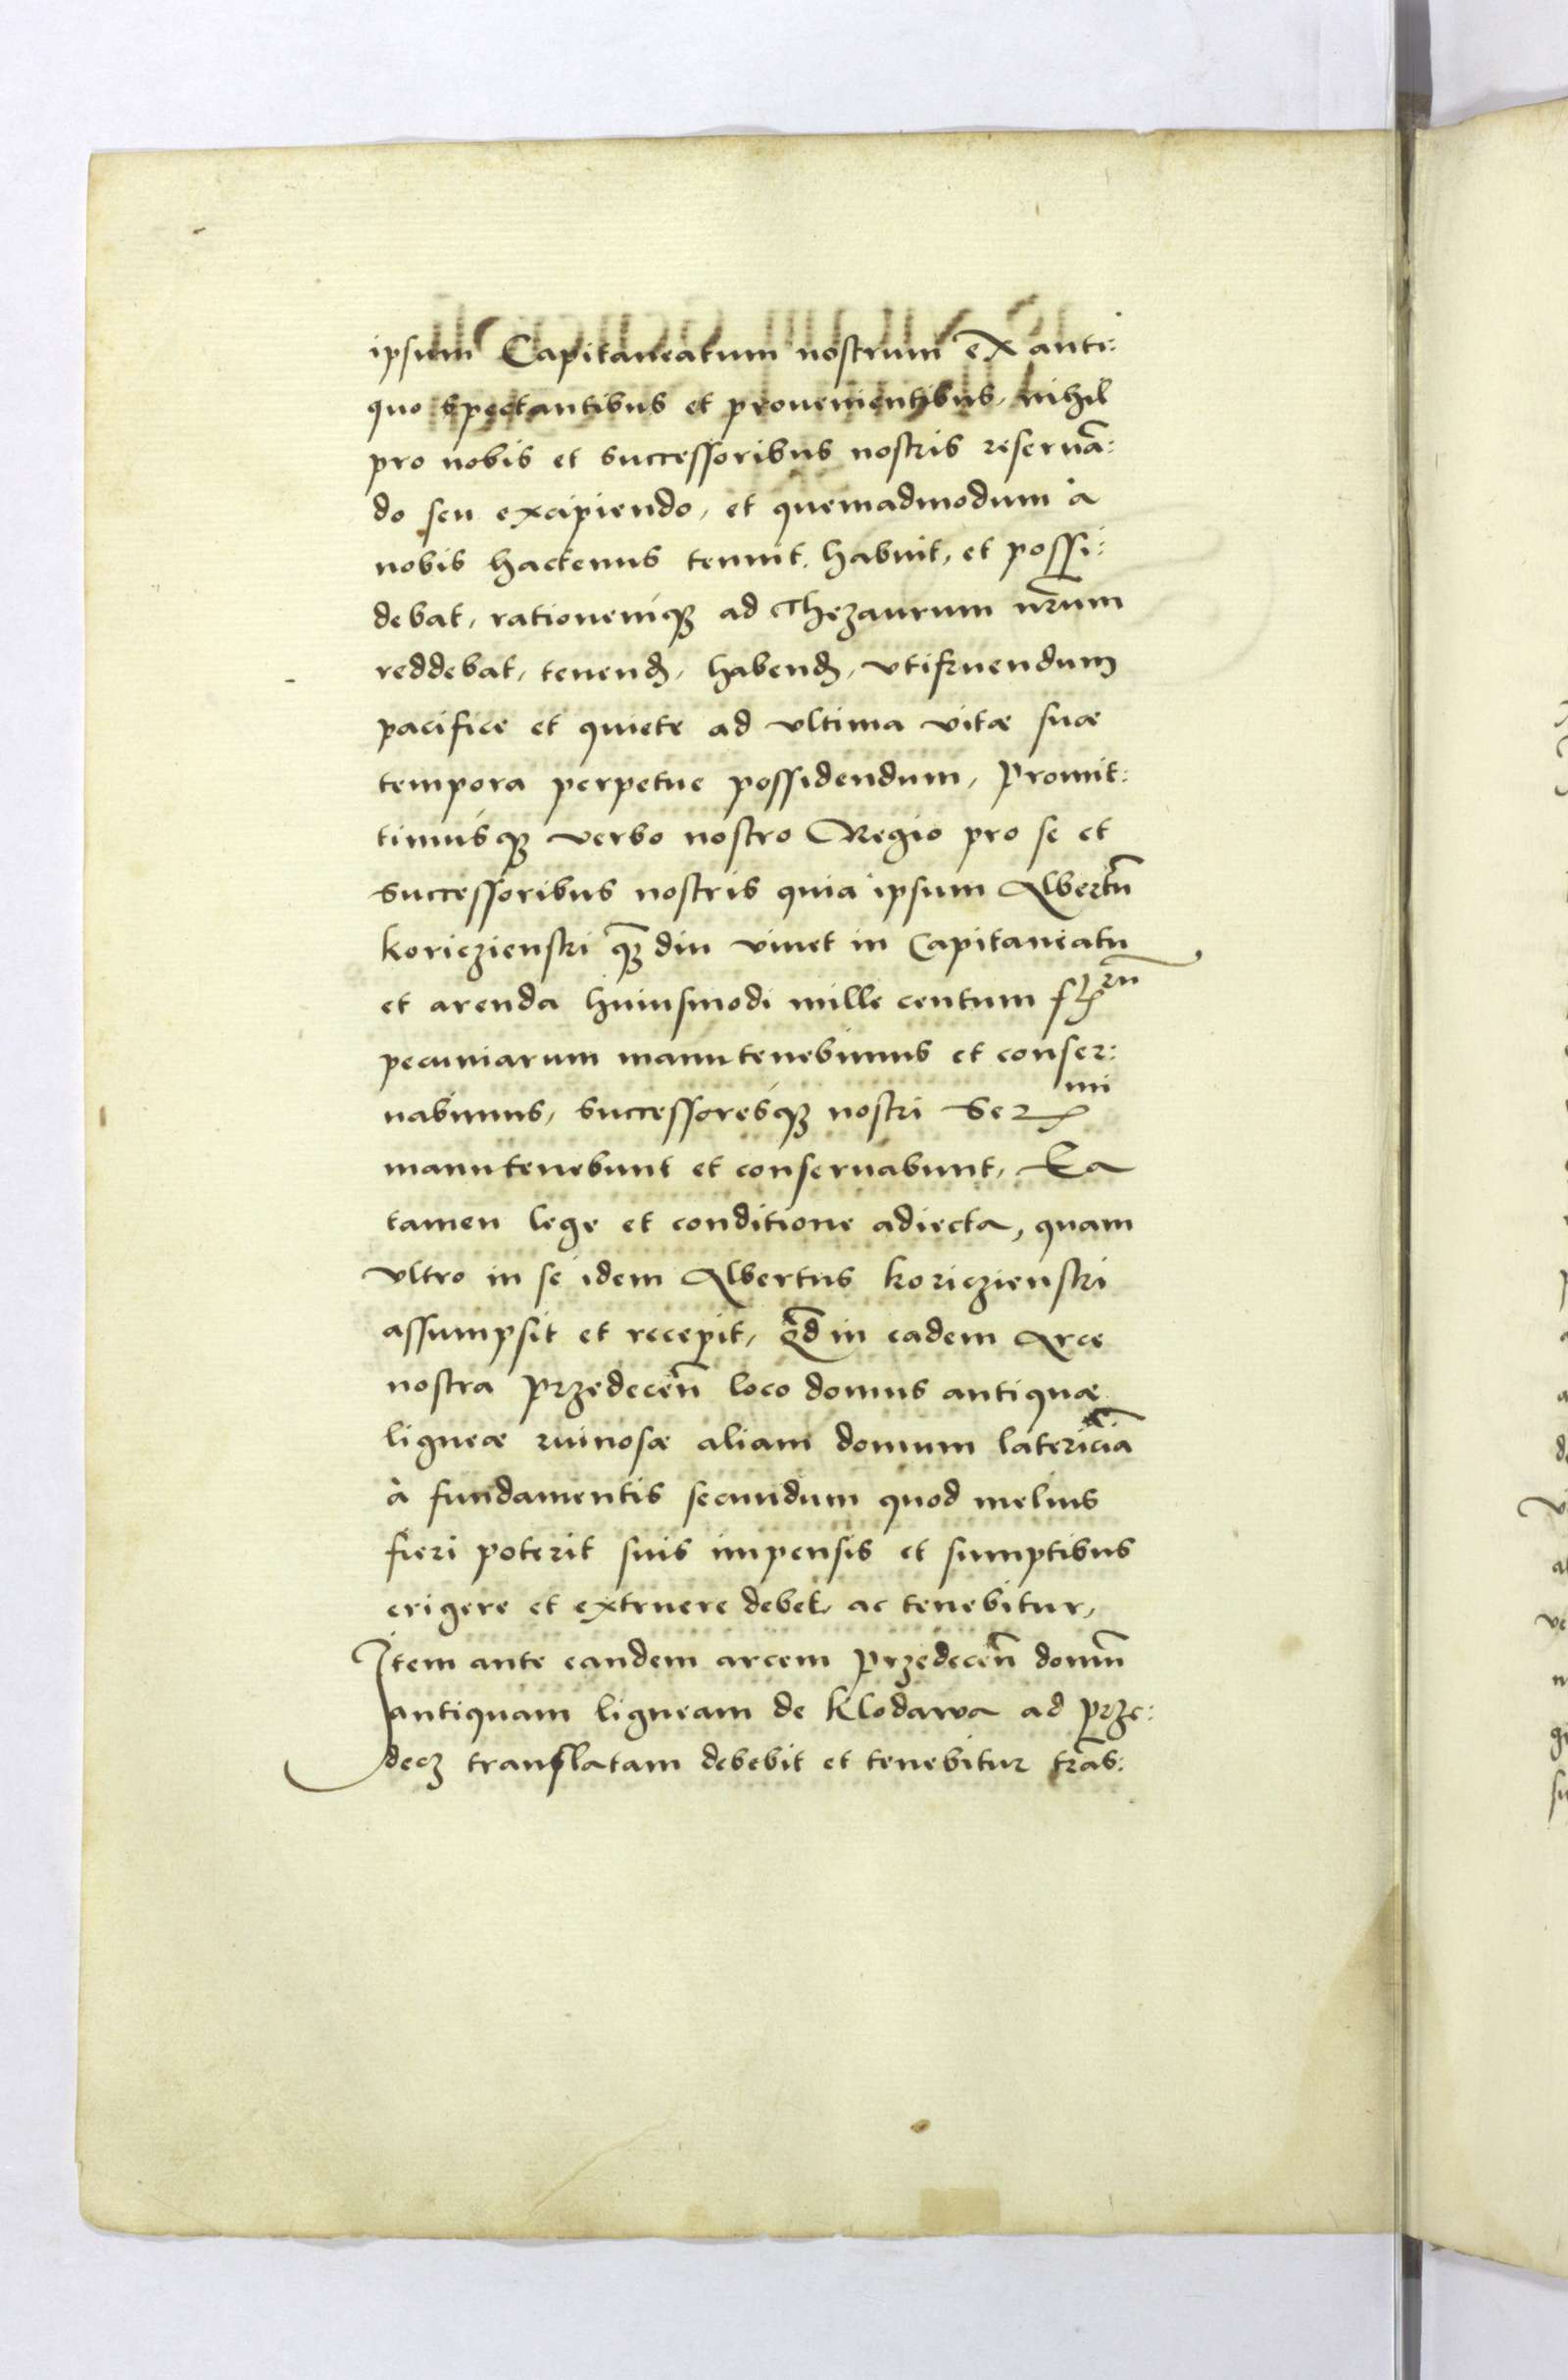 ipsum Capitaneatum nostrum ex anti:
quo spectantibus et prouenientibus, nihil
pro nobis et successoribus nostris reseruã:
do seu excipiendo, et quemadmodum à
nobis hactenus tenuit, habuit, et possi:
debat, rationemq́ꝫ ad Thezaurum nr̃um
reddebat, tenend̃, habend̃, vtifruendum
pacifice et quiete ad vltima vitæ suæ
tempora perpetue possidendum, Promit:
timusqꝫ verbo nostro Regio pro se et
successoribus nostris quia ipsum Albertũ
Koriczienski qꝫ̃ diu viuet in Capitaneatu
et arenda huiusmodi mille centum
pecuniarum manutenebimus et conser:
uabimus, successoresq́ꝫ nostri Ser̃mi
manutenebunt et conseruabunt, Ea
tamen lege et conditione adiecta, quam
vltro in se idem Albertus Koriczienski
assumpsit et recepit, Qd̃ in eadem Arce
nostra Przedeceñ loco domus antiquæ
ligneæ ruinosæ aliam domum latericiã
à fundamentis secundum quod melius
fieri poterit suis impensis et sumptibus
erigere et extruere debet ac tenebitur,
Item ante eandem arcem Przedeceñ domũ
antiquam ligneam de Klodawa ad Prze:
decz translatam debebit et tenebitur trãs: